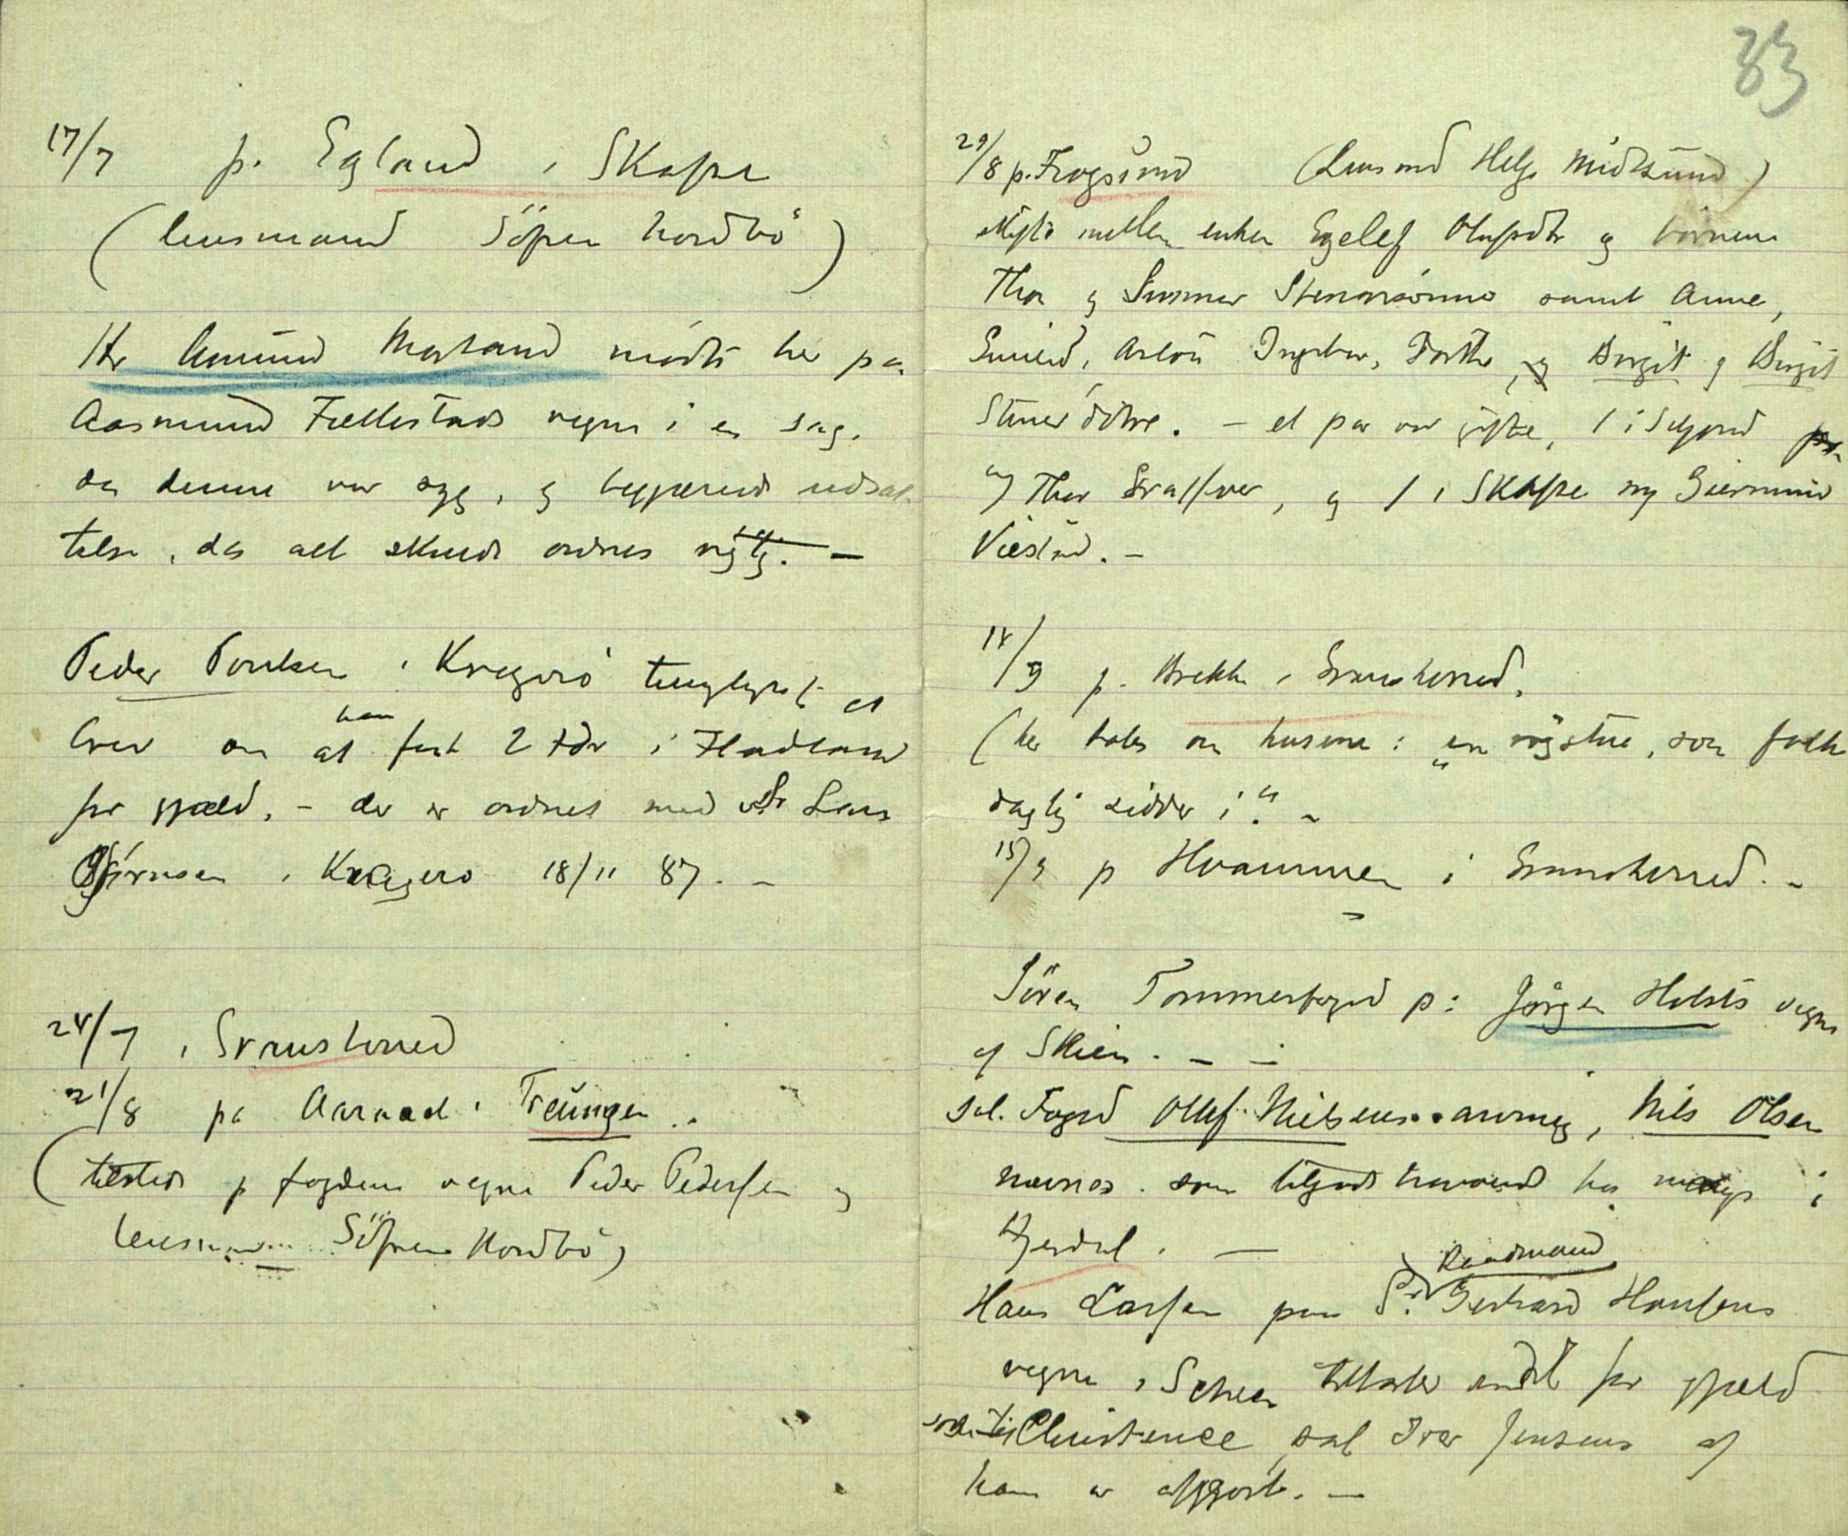 17/7 p. Egland i Skafse
(lensmand Söfren Nordbö)
Hr Amund Morland mödte her paa
Aasmund Fællestads vegne i en sag,
da denne var syg, og begjærede udsæt
telse, da alt skulde ordnes rigtig. —
Peder Poulsen i Kragerö tinglyste et
brev om at han fæst 2 tdr i Fladland
for gjæld, – der er ordnet med Sr Lars
Björnsen i Kragerö 18/11 87. –
24/7 i Sransherred
21/8 på Aaraad i Treungen.
(tilstede p fogdens vegne Peder Pedersen og
lensmand Söfren Nordbö)
83
29/8 p. Frogsund (Lensmd Helge Midtsund)
skifte mellem enken Egelef Olufsdtr og börnene
Thor og Gunnar Stenarsönne samt Anne,
Gunild, Aslou Ingebor, Dorthe, og Birgit og Birgit
Stener dötre. – et par var gifte, 1 i Seljord
m Thor , og 1 i Skafse m Giermund
14/9 p. Brekke i Gransherred.
(her tales om husene: "en rögstue, som folk
daglig sidder i". –
15/9 p Hvammen i Gransherred. –
Sören Tommerfoged p: Jörgen Holsts vegne
af Skien. – –
sal. Fogd Olluf Nielsens arving, Nils Olsen
nævnes. som tilgodehavende hos mange i
Hjerdal. —
Hans Larsen paa Sr. Raadmand Gerhard Hansens
vegne i Scheen tiltaler endel for gjæld
Christence, sal Iver Jensens af
ham er afgjort. —